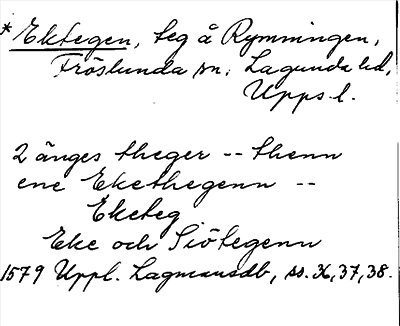 * Ektegen, teg å Rymningen,
Fröslunda sn, Lagunda hd,
Upps. l.
2 änges theger -- thenn
ene Ekethegenn --
Eketeg
Eke och Siötegenn
1579 Uppl. Lagmansdb, ss. 36, 37, 38.